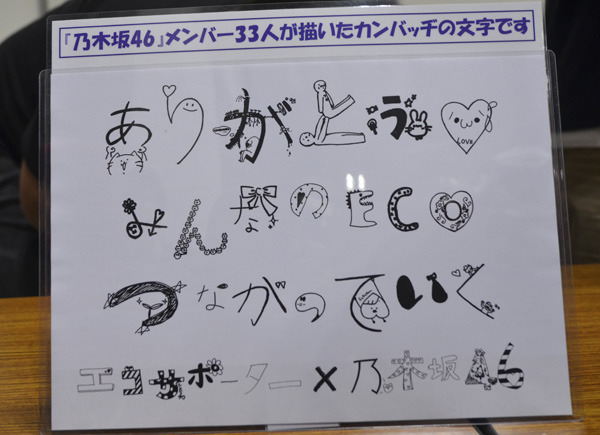 『乃木坂46』メンバー33人が描いたカンバッヂの文字です
ありがとう
LOVE
みんなのECO
つながっていく
エコサポーター×乃木坂46